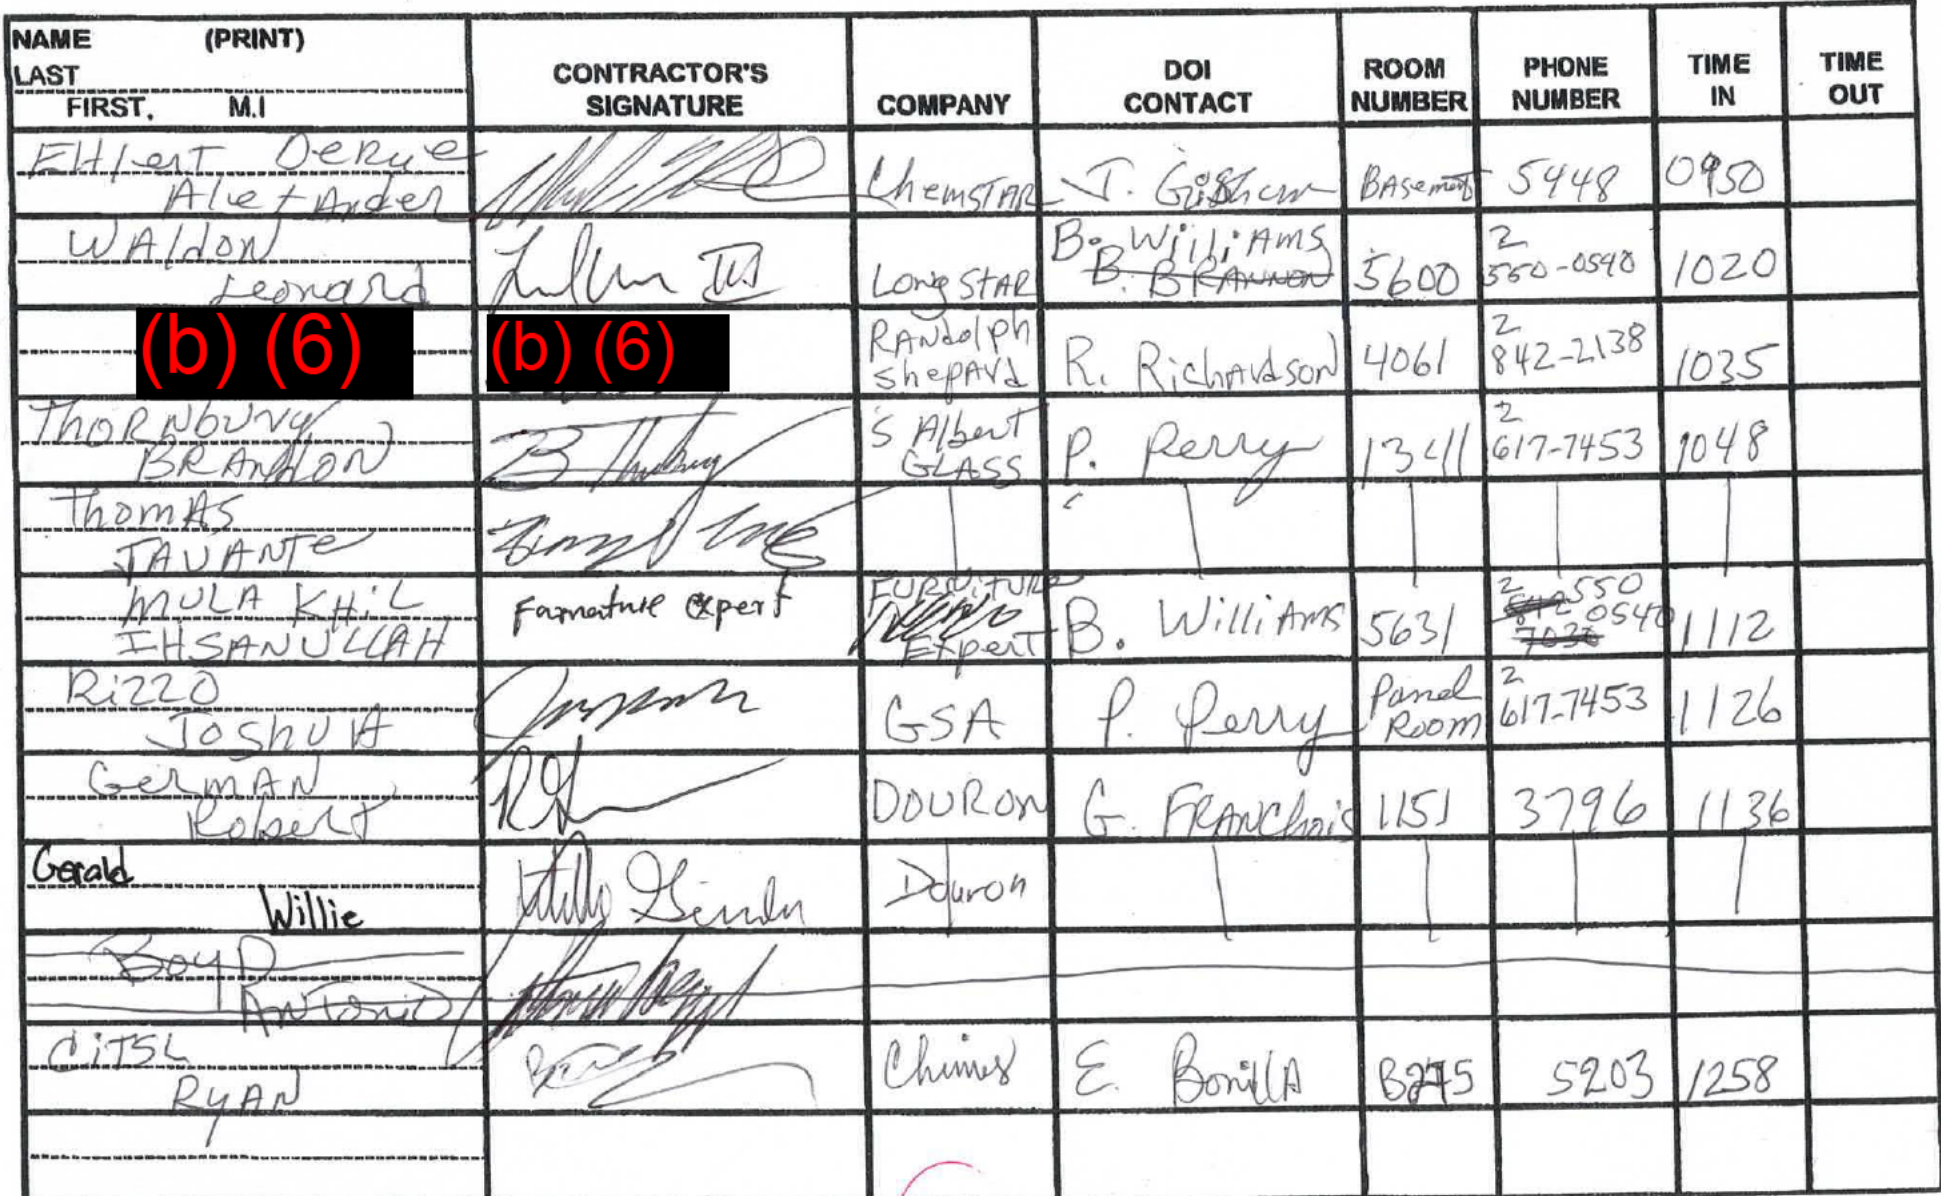 NAME (PRINT)
LAST
FIRST, M.I
CONTRACTOR'S
SIGNATURE
COMPANY
DOI
CONTACT
ROOM
NUMBER
PHONE
NUMBER
TIME
IN
TIME
OUT
ChemSTAR J. BASement 5448 0950
WAldon
Leonard
LongSTAR
B. WilliAMS
B. BRANNON
5600
2
550-0540
1020
(b) (6)
(b) (6)
RANdolph
ShepARd
R. RichARdson
4061
2
842-2138
1035
ThoRNbuRy
BRANDON
S Albert
GLASS
P. Perry
1341
2
617-7453
1048
ThomAS
JAVANTe
MULA KHiL
IHSANULLAH
Farnature expert
FURNiTURE
Expert
B. WilliAMS
5631
2
550
0540
1112
RiZZO
JOShUA
GSA
P. Perry
Panel
Room
2
617-7453
1126
GeRMAN
Robert
DOURON
G. FRANChois
1151
3796
1136
Gerald
Willie
Douron
BoyD
ANTonio
CiTSL
RyAN
Chimes
E. BonillA
B275
5203
1258